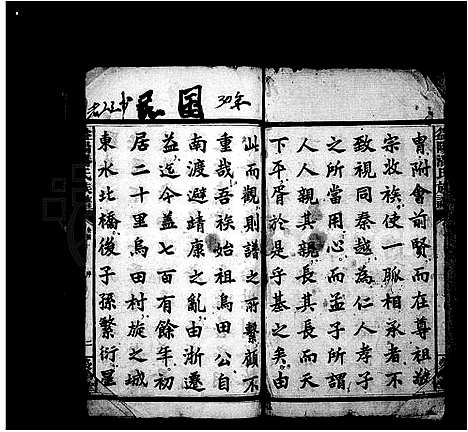 民國 30年
胄附會前賢而在尊祖敬
宗收族使一脈相承者不
致視同秦越為仁人孝子
之所當用心而孟子所謂
人人親其親長其長而天
下平胥於是乎基之矣由
此而觀則譜之所繫顧不
重哉吾族始祖烏田公自
南渡避靖康之亂由浙遷
益迄今蓋七百有餘年初
居二十里烏田村旋之城
東水北橋後子孫繁衍星